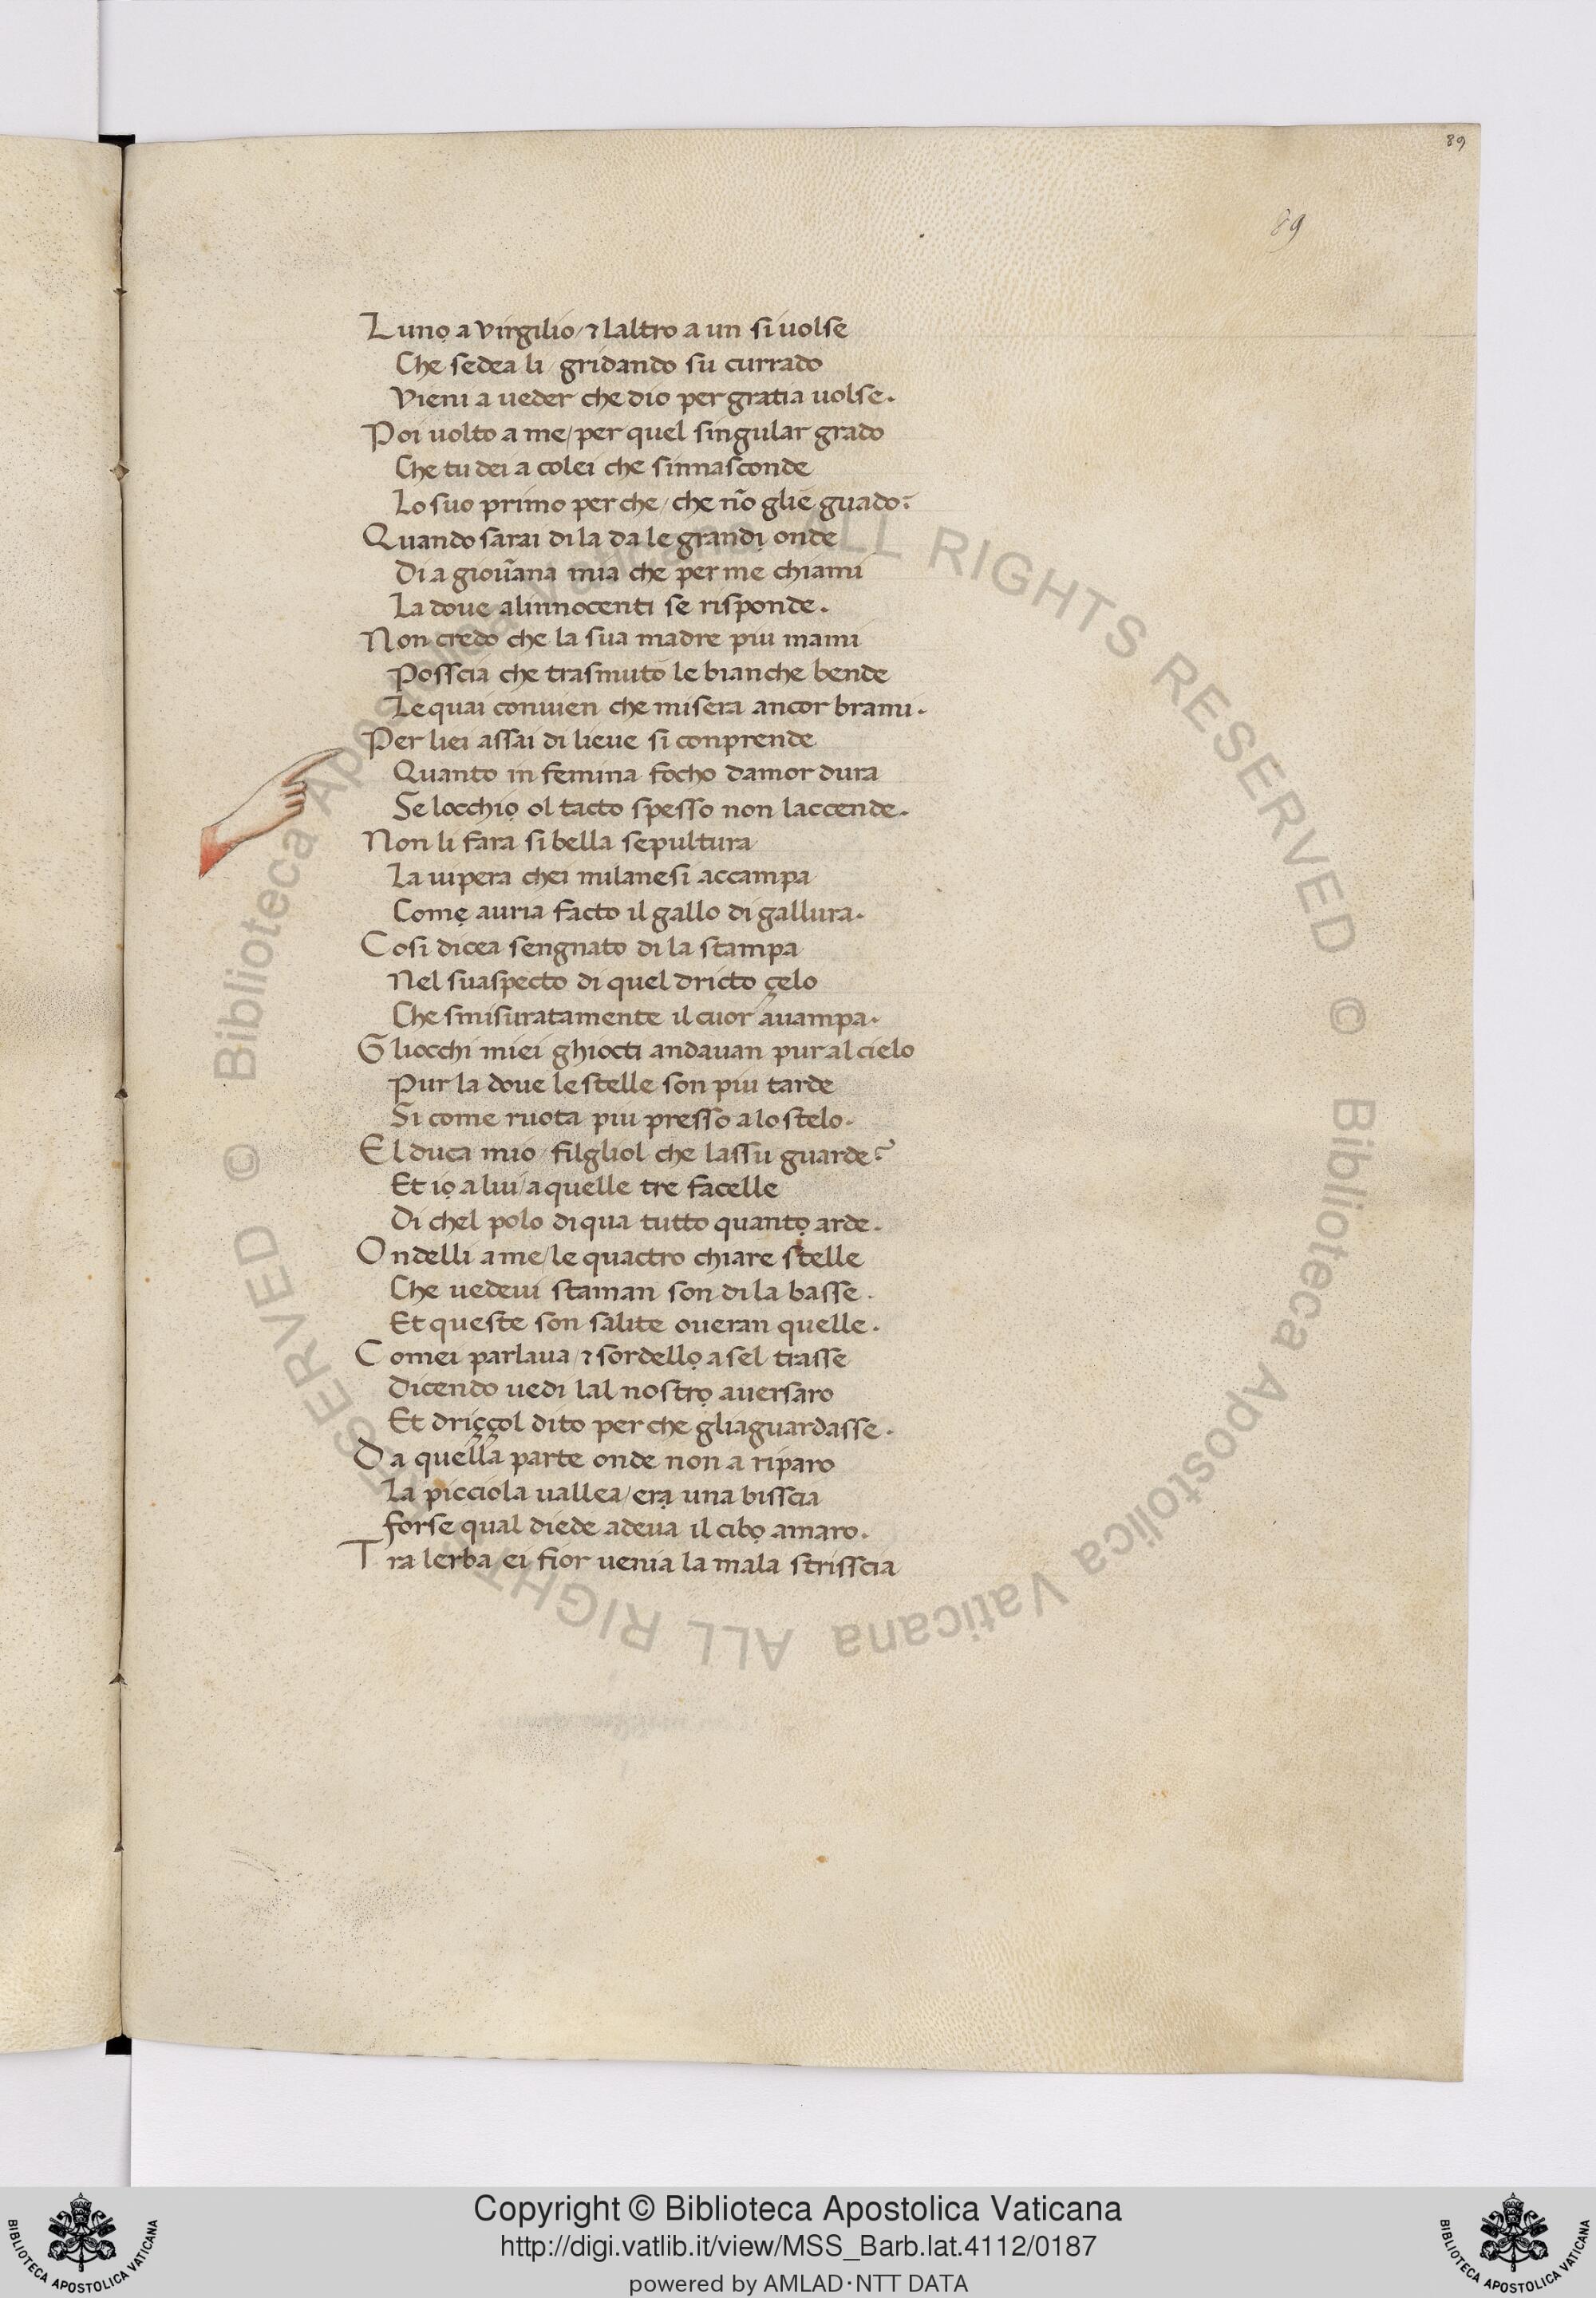 89
89
Lunọ a virgilio/ ⁊ laltro a un si uolse
Che sedea li/ gridando su currado
Vieni a ueder che dio per gratia uolse.
Poi uolto a me/ per quel singular grado
Che tu dei a colei che sinnasconde
Lo suo primo perche/ che nō glie guado?
Quando sarai di la da le grandị onde
Di a gioūana mia che per me chiami
La doue alinnocenti se risponde.
Non credo che la sua madre piu mami
Posscia che trasmuto le bianche bende
Le quai conuien che misera ancor brami.
Per liei assai di lieue si conprende
Quanto in femina focho damor dura
Se locchiọ ol tacto spesso non laccende.
Non li fara si bella sepultura
La uipera chei milanesi accampa
Comẹ auria facto il gallo di gallura.
Cosi dicea sengnato di la stampa
Nel suaspecto di quel dricto çelo
Che smisuratamente il cuor auampa.
Gliocchi miei ghiocti andauan pur al cielo
Pur la doue le stelle son piu tarde
Si come ruota piu presso a lo stelo.
El duca mio/ filgliol che lassu guarde?
Et iọ a lui/ a quelle tre facelle
Di chel polo di qua tutto quantọ arde.
Ondelli a me/ le quactro chiare stelle
Che uedeui staman son di la basse.
Et queste son salite oueran quelle.
Comei parlaua/ ⁊ sordellọ a sel trasse
Dicendo uedi lal nostrọ auersaro
Et driççol dito per che gliaguardasse.
Da quella parte onde non a riparo
La picciola uallea/ erạ una bisscia
forse qual diede adeua il cibọ amaro.
Tra lerba ei fior uenia la mala strisscia
© Biblioteca Apostolica Vaticana ALL RIGHTS RESERVED © Biblioteca Apostolica Vaticana ALL RIGHTS RESERVED
Copyright © Biblioteca Apostolica Vaticana
http://digi.vatlib.it/view/MSS_Barb.lat.4112/0187
powered by AMLAD·NTT DATA
BIBLIOTECA APOSTOLICA VATICANA
BIBLIOTECA APOSTOLICA VATICANA